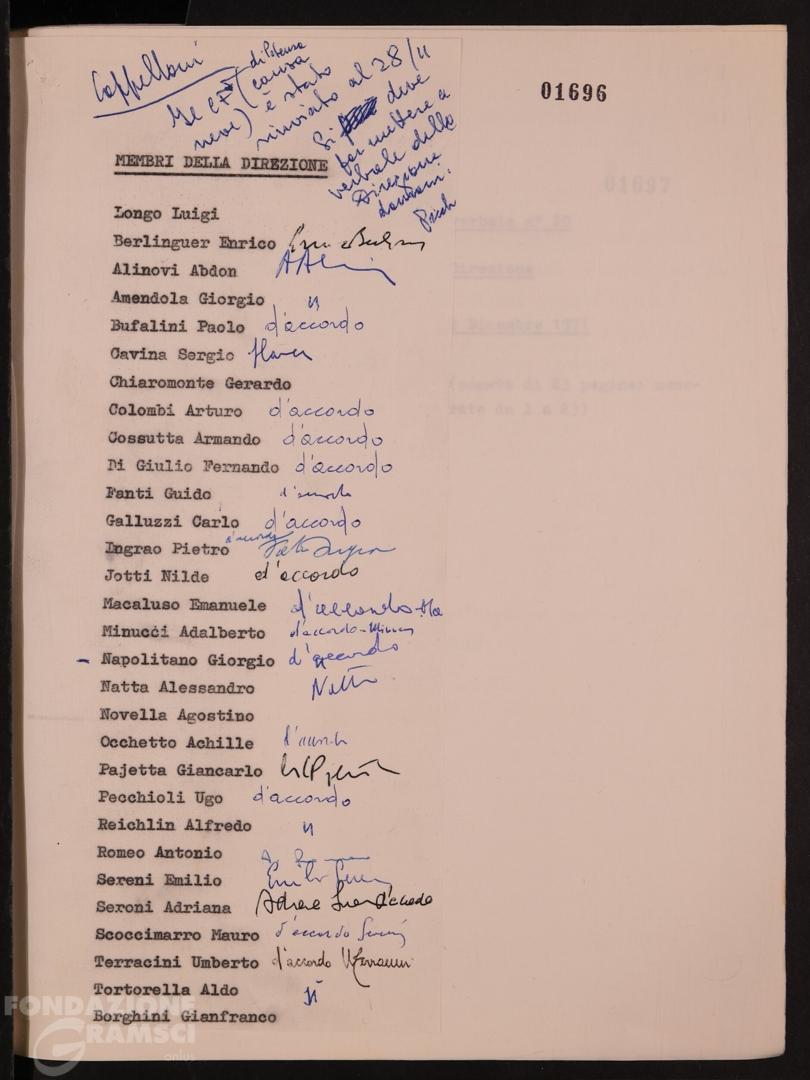 01696
Cappelloni
di Potenza
Il CF (causa
neve) è stato
rinviato al 28/11
Si deve
far mettere a
verbale della
Direzione
MEMBRI DELLA DIREZIONE
Longo Luigi
Berlinguer Enrico Enrico Berlinguer
Alinovi Abdon
Amendola Giorgio
Bufalini Paolo d'accordo
Cavina Sergio
Chiaromonte Gerardo
Colombi Arturo d'accordo
Cossutta Armando d'accordo
Di Giulio Fernando d'accordo
Fanti Guido d'accordo
Galluzzi Carlo d'accordo
Ingrao Pietro d'accordo Pietro Ingrao
Jotti Nilde d'accordo
Macaluso Emanuele d'accordo - Ma
Minucci Adalberto d'accordo - Minucci
- Napolitano Giorgio d'accordo
Natta Alessandro Natta
Novella Agostino
Occhetto Achille d'accordo
Pajetta Giancarlo
Pecchioli Ugo d'accordo
Reichlin Alfredo
Romeo Antonio
Sereni Emilio Emilio Sereni
Seroni Adriana Adriana Seroni d'accordo
Scoccimarro Mauro d'accordo
Terracini Umberto d'accordo UTerracini
Tortorella Aldo sì
Borghini Gianfranco
FONDAZIONE
GRAMSCI
onlus